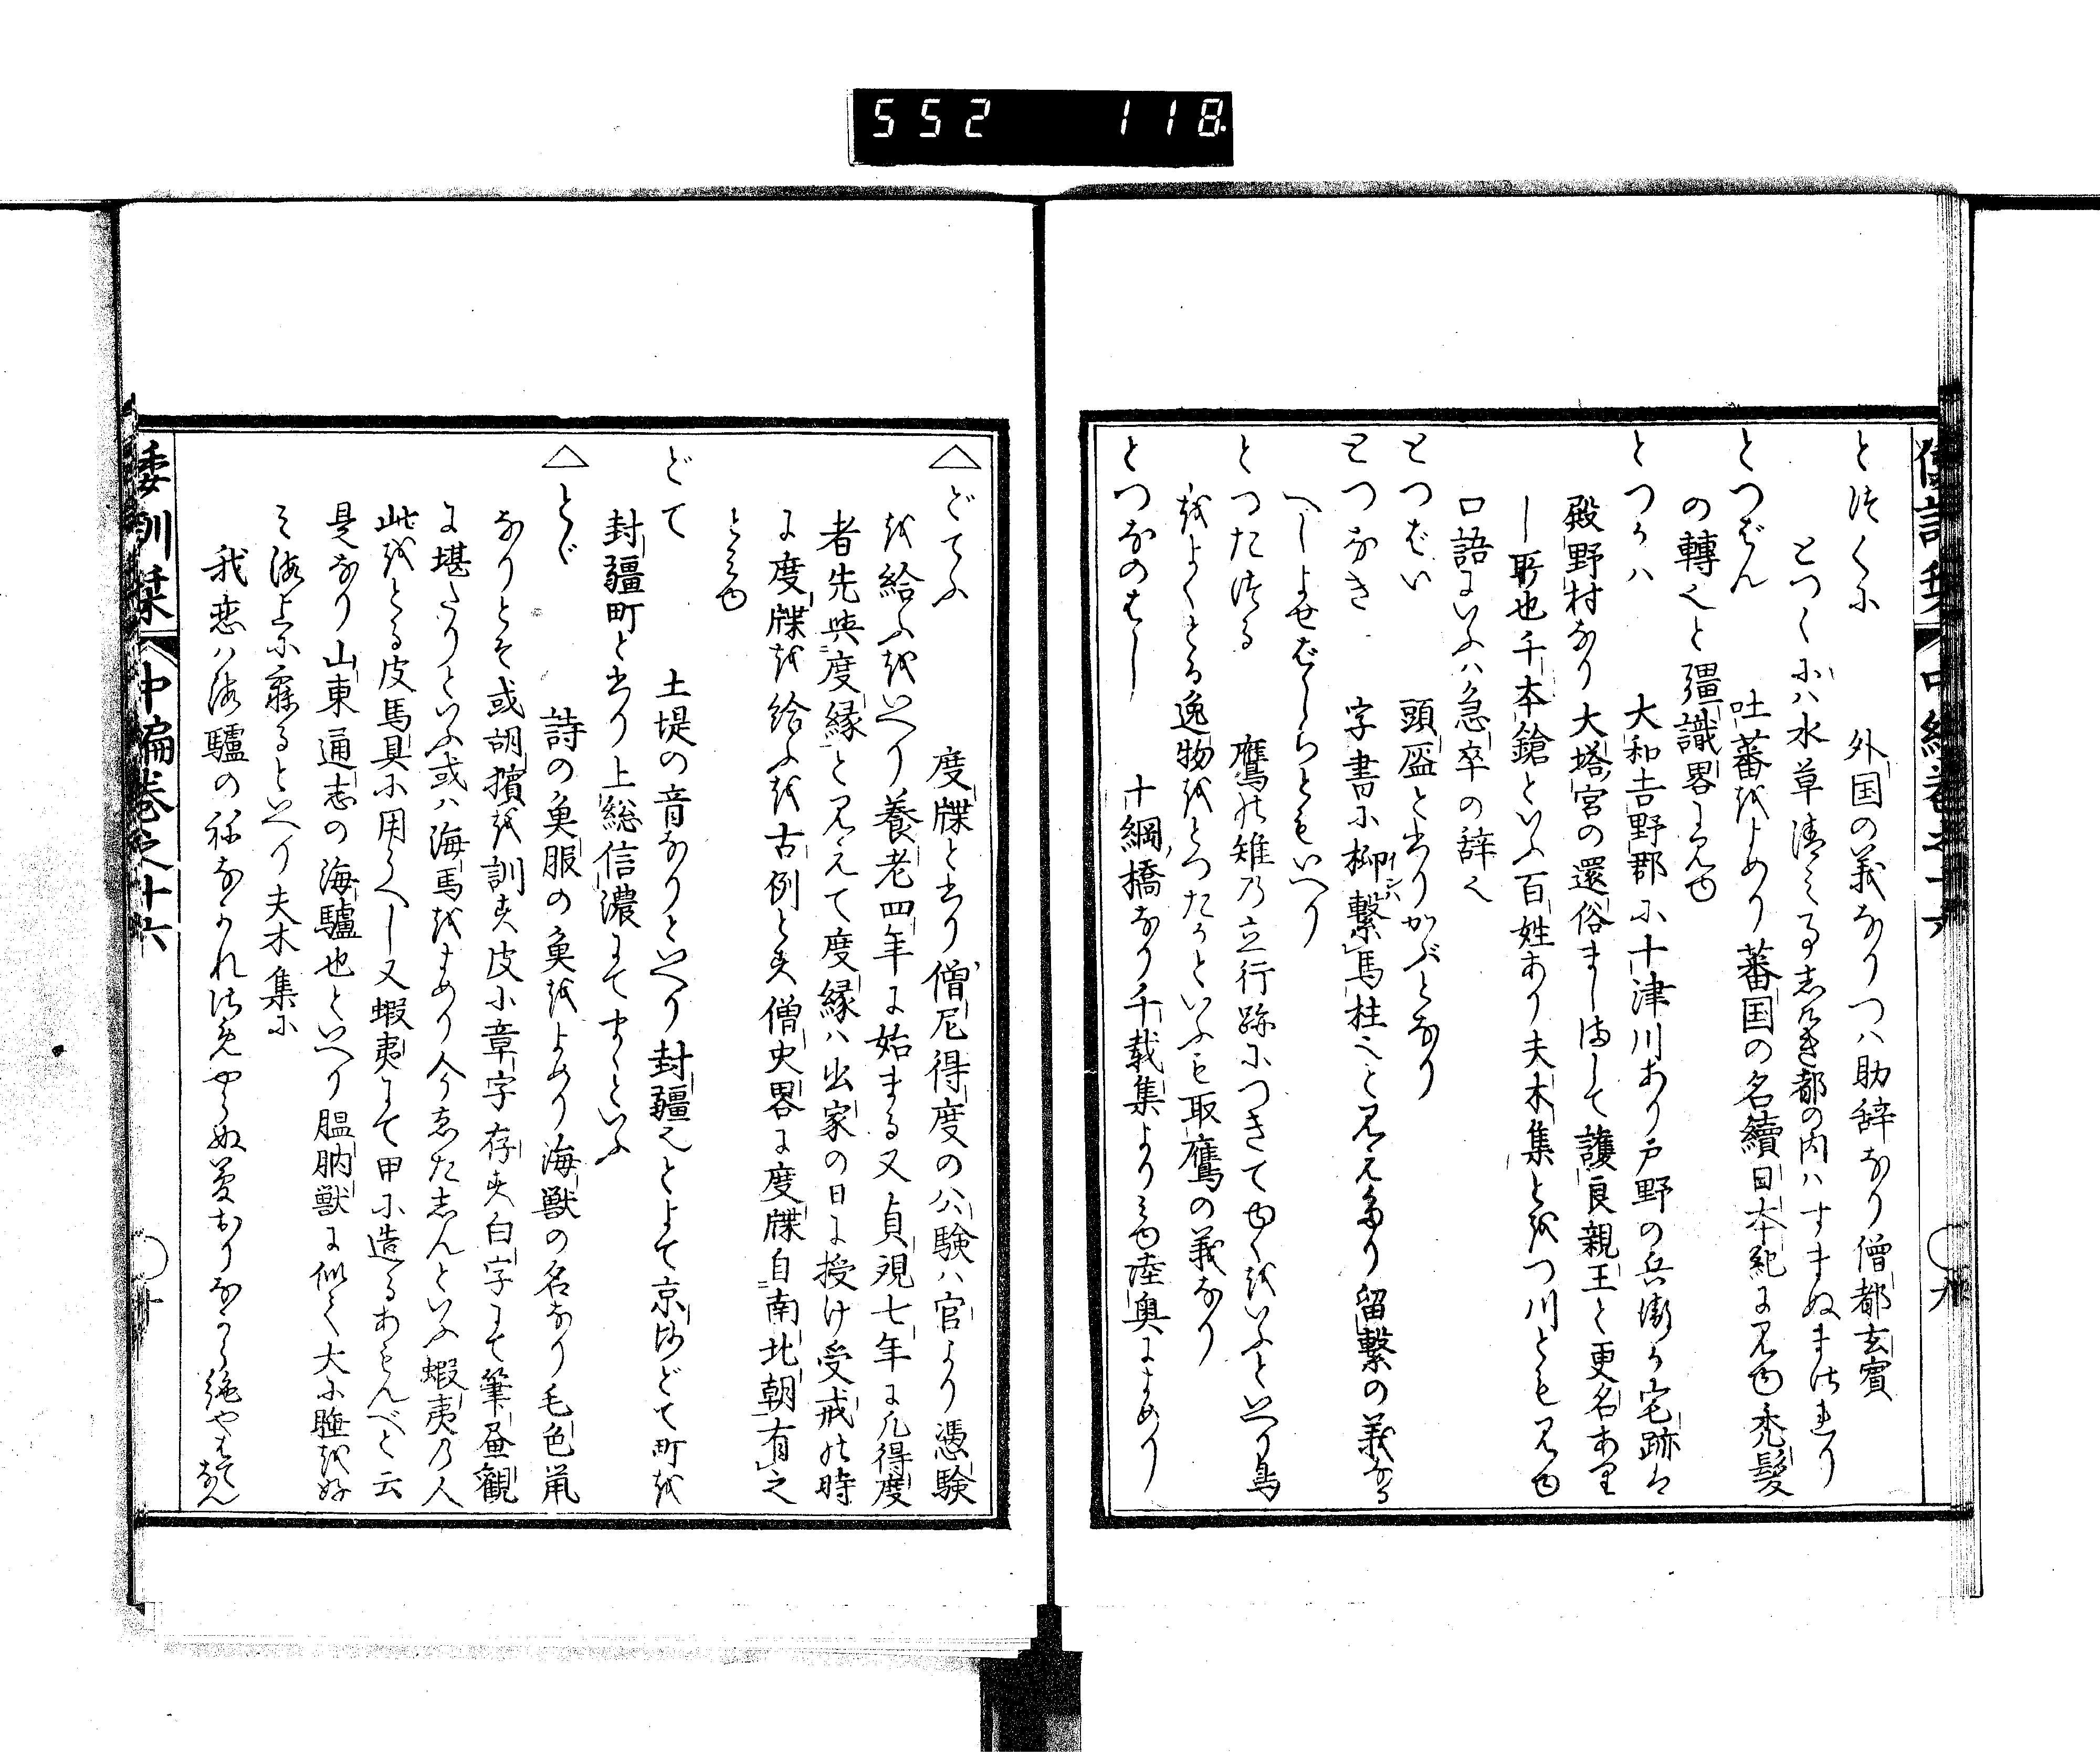 552 118.
とつくに 外国の義なりつハ助辞なり僧都玄賓
とつくにハ水草清みことしけき都の内ハすまぬまされり
とつばん 吐蕃をよめり蕃国の名續日本紀に見ゆ禿髪
の轉也と彊識畧に見ゆ
とつかハ 大和吉野郡に十津川あり戸野の兵衛か宅跡は
殿野村なり大塔宮の還俗ましまして護良親王と更名あり
し所也千本鎗といふ百姓あり夫木集とをつ川とも見ゆ
口語にいふハ急卒の辞也
とつはい 頭盔と書りかぶとなり
とつなき 字書に枊繋馬柱也と見えたり留繋の義なる
へしよせばしらともいへり
とつたつる 鷹の雉の立行跡につきてゆくをいふといへり鳥
をよくとる逸物をとつたかといふも取鷹の義なり
とつなのはし 十綱橋なり千載集よりみゆ陸奥によめり
倭訓栞 中編巻之十六 ○九
△どてふ 度牒と書り僧尼得度の公験ハ官より憑験
を給ふをいへり養老四年に始まる又貞観七年に凡得度
者先與度縁と見えて度縁ハ出家の日に授け受戒の時
に度牒を給ふを古例とす僧史畧に度牒自南北朝有之
とみゆ
どて 土堤の音なりといへり封疆也とよて京師どて町を
封疆町と書り上総信濃にてまゝといふ
△とゞ 詩の魚服の魚をよめり海獣の名なり毛色鼠
なりとそ或胡獱を訓す皮に章字存す白字にて筆畫観
に堪たりといふ或ハ海馬をよめり今ゑた志んといふ蝦夷の人
此をとる皮馬具に用うへし又蝦夷にて甲に造るあもんべと云
是なり山東通志の海驢也といへり膃肭獣に似て大に睡を好
み海上に寐るといへり夫木集に
我恋ハ海驢のねなかれさめやらぬ夢なりなから絶やはてなん
倭訓栞 中編巻之十六 ○十